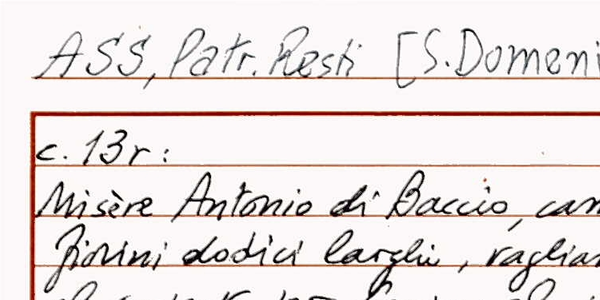 ASS, Patr. Resti [S. Domeni
c. 13r:
Misère Antonio di Baccio, cam
fiorini dodici larghi, vaglian